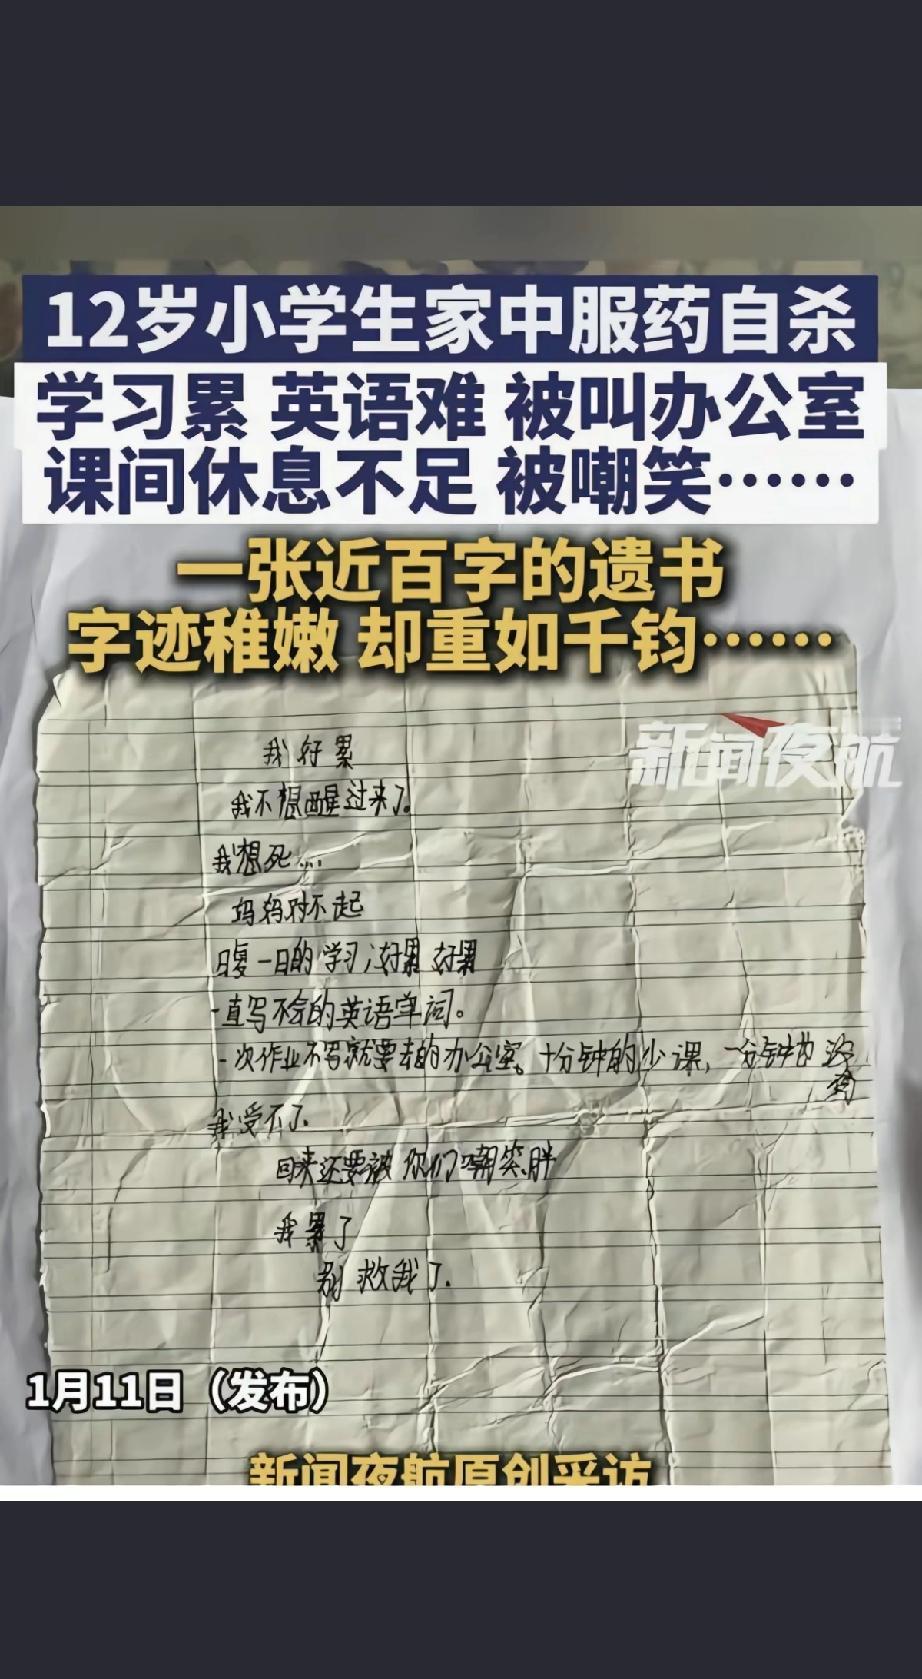 12岁小学生家中服药自杀
学习累 英语难 被叫办公室
课间休息不足 被嘲笑……
一张近百字的遗书
字迹稚嫩 却重如千钧……
新闻夜航
我好累
我不想醒过来了。
我想死...
妈妈对不起
日复一日的学习,好累 好累
一直写不会的英语单词。
一次作业不写就要去的办公室。十分钟的少课,一分钟也没
有
我受不了
回来还要被你们嘲笑胖
我累了
别救我了.
1月11日（发布）
新闻夜航原创采访